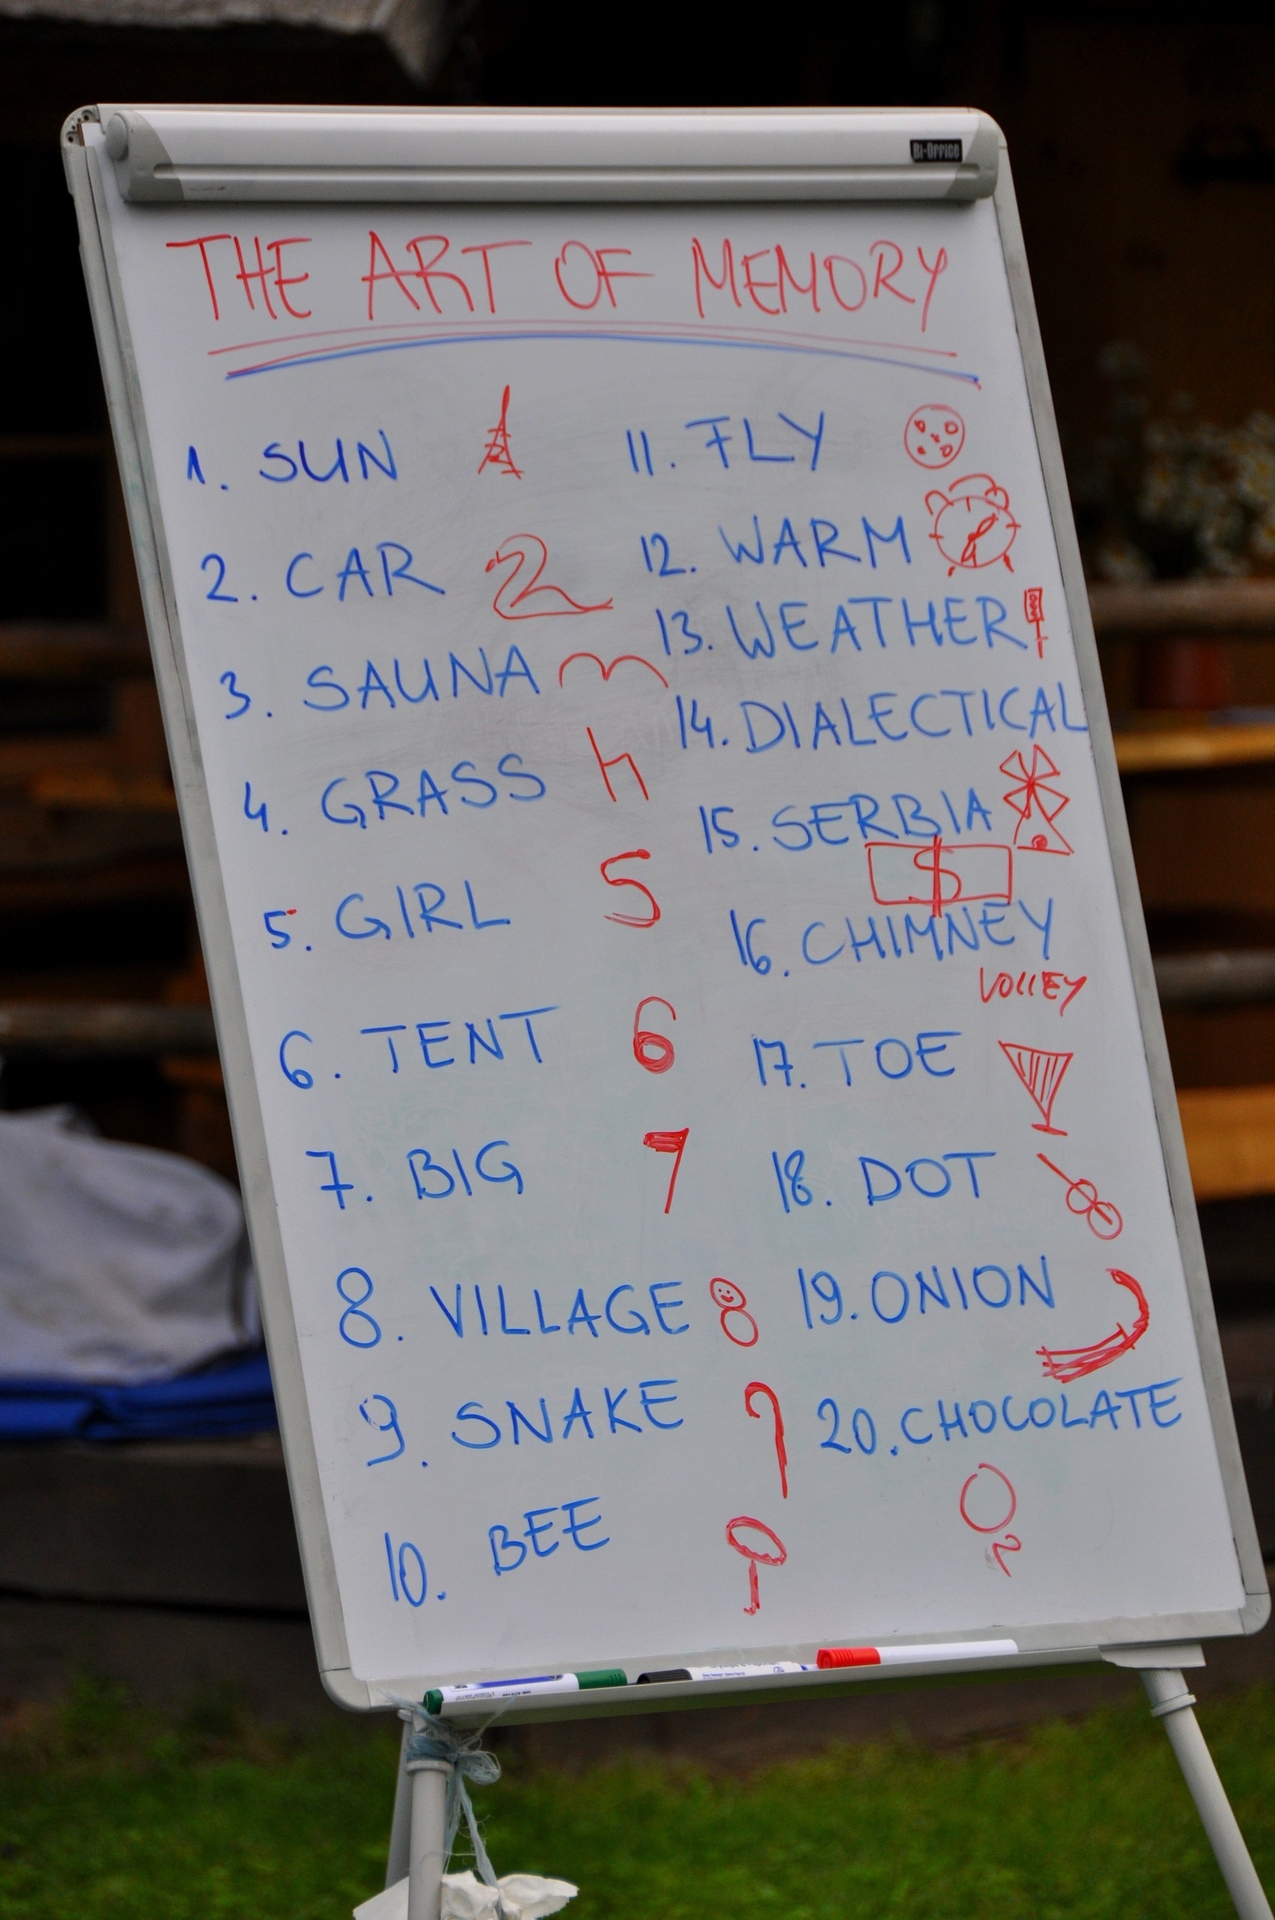 Bi-Office
THE ART OF MEMORY
1. SUN
2. CAR
2
3. SAUNA
4. GRASS
5. GIRL
5
6. TENT
6
7. BIG
7
8. VILLAGE
8
9. SNAKE
10. BEE
11. FLY
12. WARM
13. WEATHER
14. DIALECTICAL
15. SERBIA
$
16. CHIMNEY
VOLLEY
17. TOE
18. DOT
19. ONION
20. CHOCOLATE